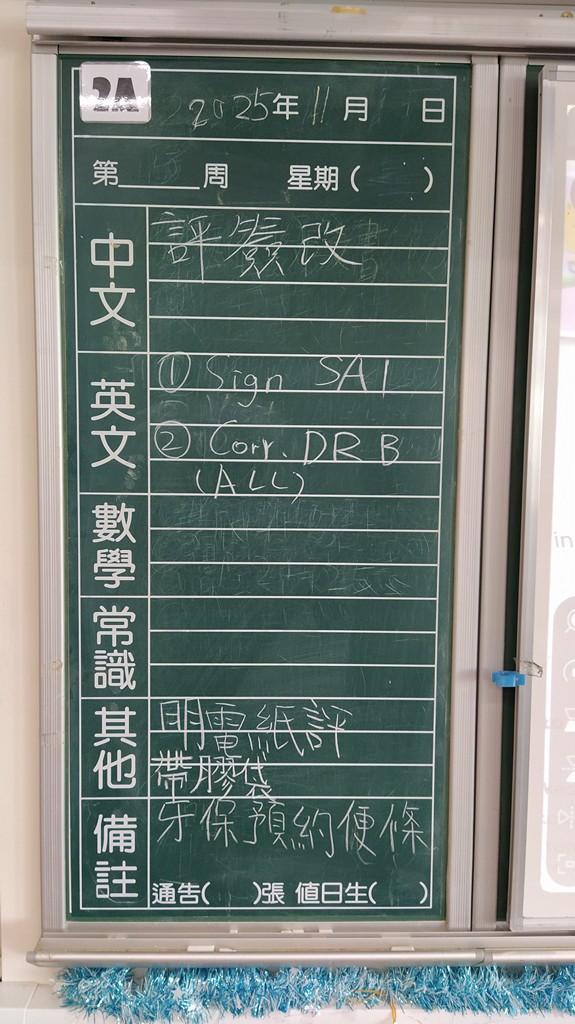 2A
2025年 11月 日
第 周 星期( )
中文
評簽改
英文
① Sign SA1
② Corr. DR B
(ALL)
數學
常識
其他
明電紙評
帶膠袋
備註
牙保預約便條
通告( )張 值日生( )
in